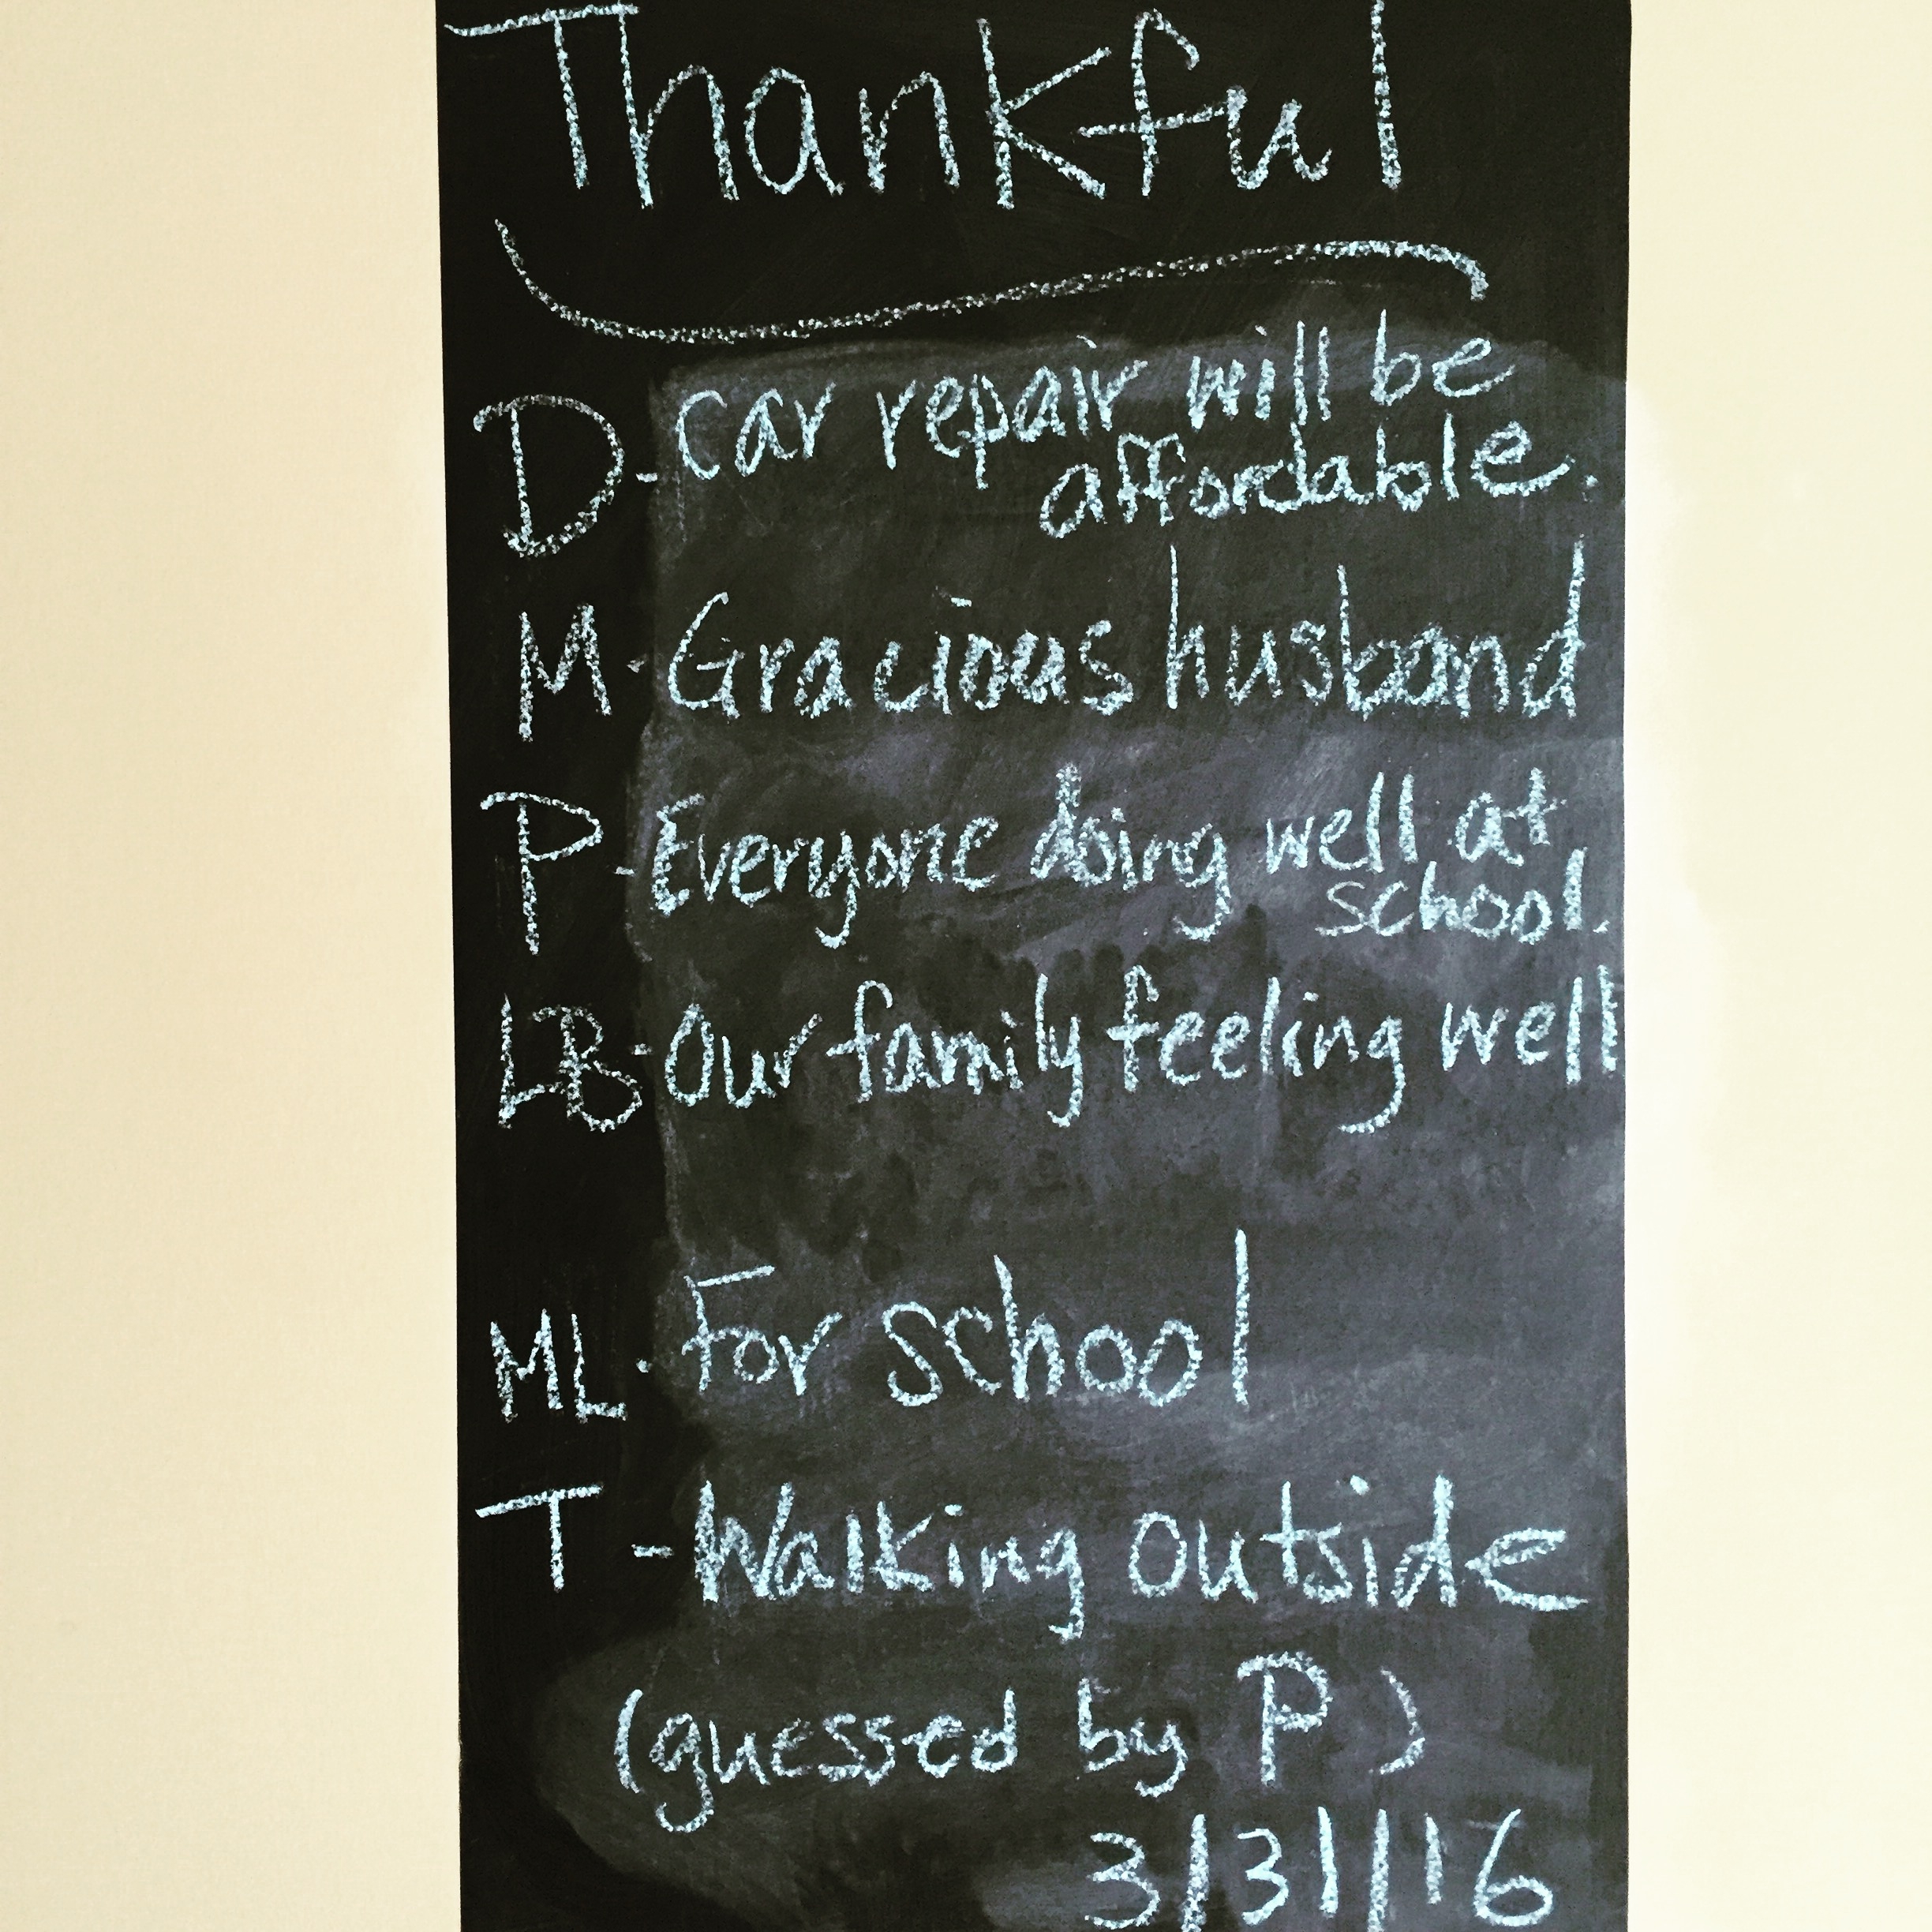 Thankful
D - car repair will be
affordable.
M - Gracious husband
P - Everyone doing well at
school.
LB - Our family feeling well
ML - For school
T - Walking outside
(guessed by P)
3/31/16